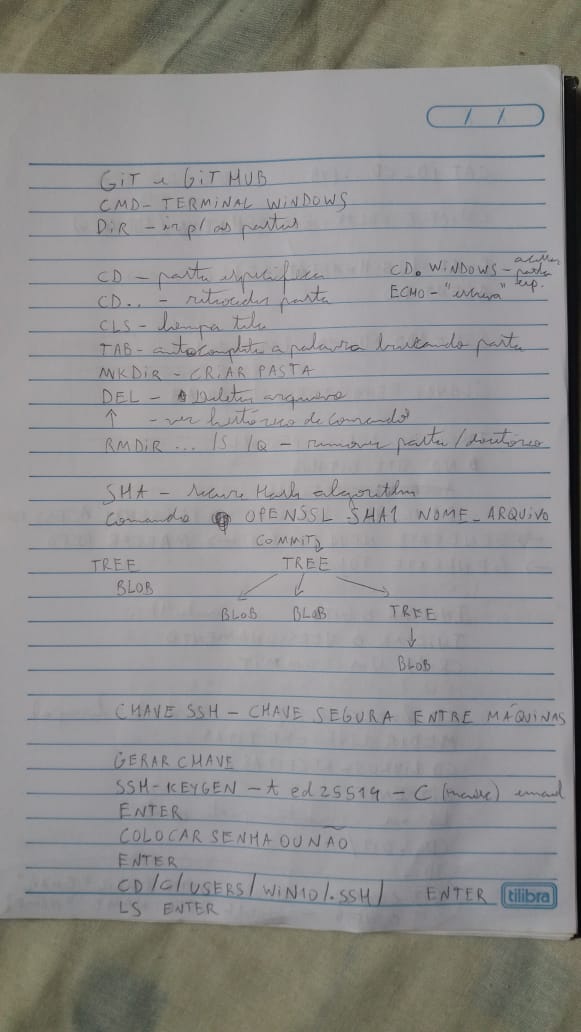 / /
GIT e GITHUB
CMD - TERMINAL WINDOWS
DIR - as pastas
CD - pasta específica
CD.. - retroceder pasta
CD. WINDOWS - pasta
ECHO - "escreva"
CLS - limpa tela
TAB - autocomplete a palavra buscando pasta
MKDIR - CRIAR PASTA
DEL - Deletar arquivo
↑ - ver histórico de comando
RMDIR ... /S /Q - remover pasta/diretório
SHA - Secure Hash algorithm
Comando OPENSSL SHA1 NOME_ARQUIVO
COMMIT
TREE TREE
BLOB
BLOB BLOB TREE
BLOB
CHAVE SSH - CHAVE SEGURA ENTRE MÁQUINAS
GERAR CHAVE
SSH-KEYGEN -t ed25519 - C email
ENTER
COLOCAR SENHA OU NÃO
ENTER
CD /C/USERS/WIN10/.SSH/ ENTER
tilibra
LS ENTER